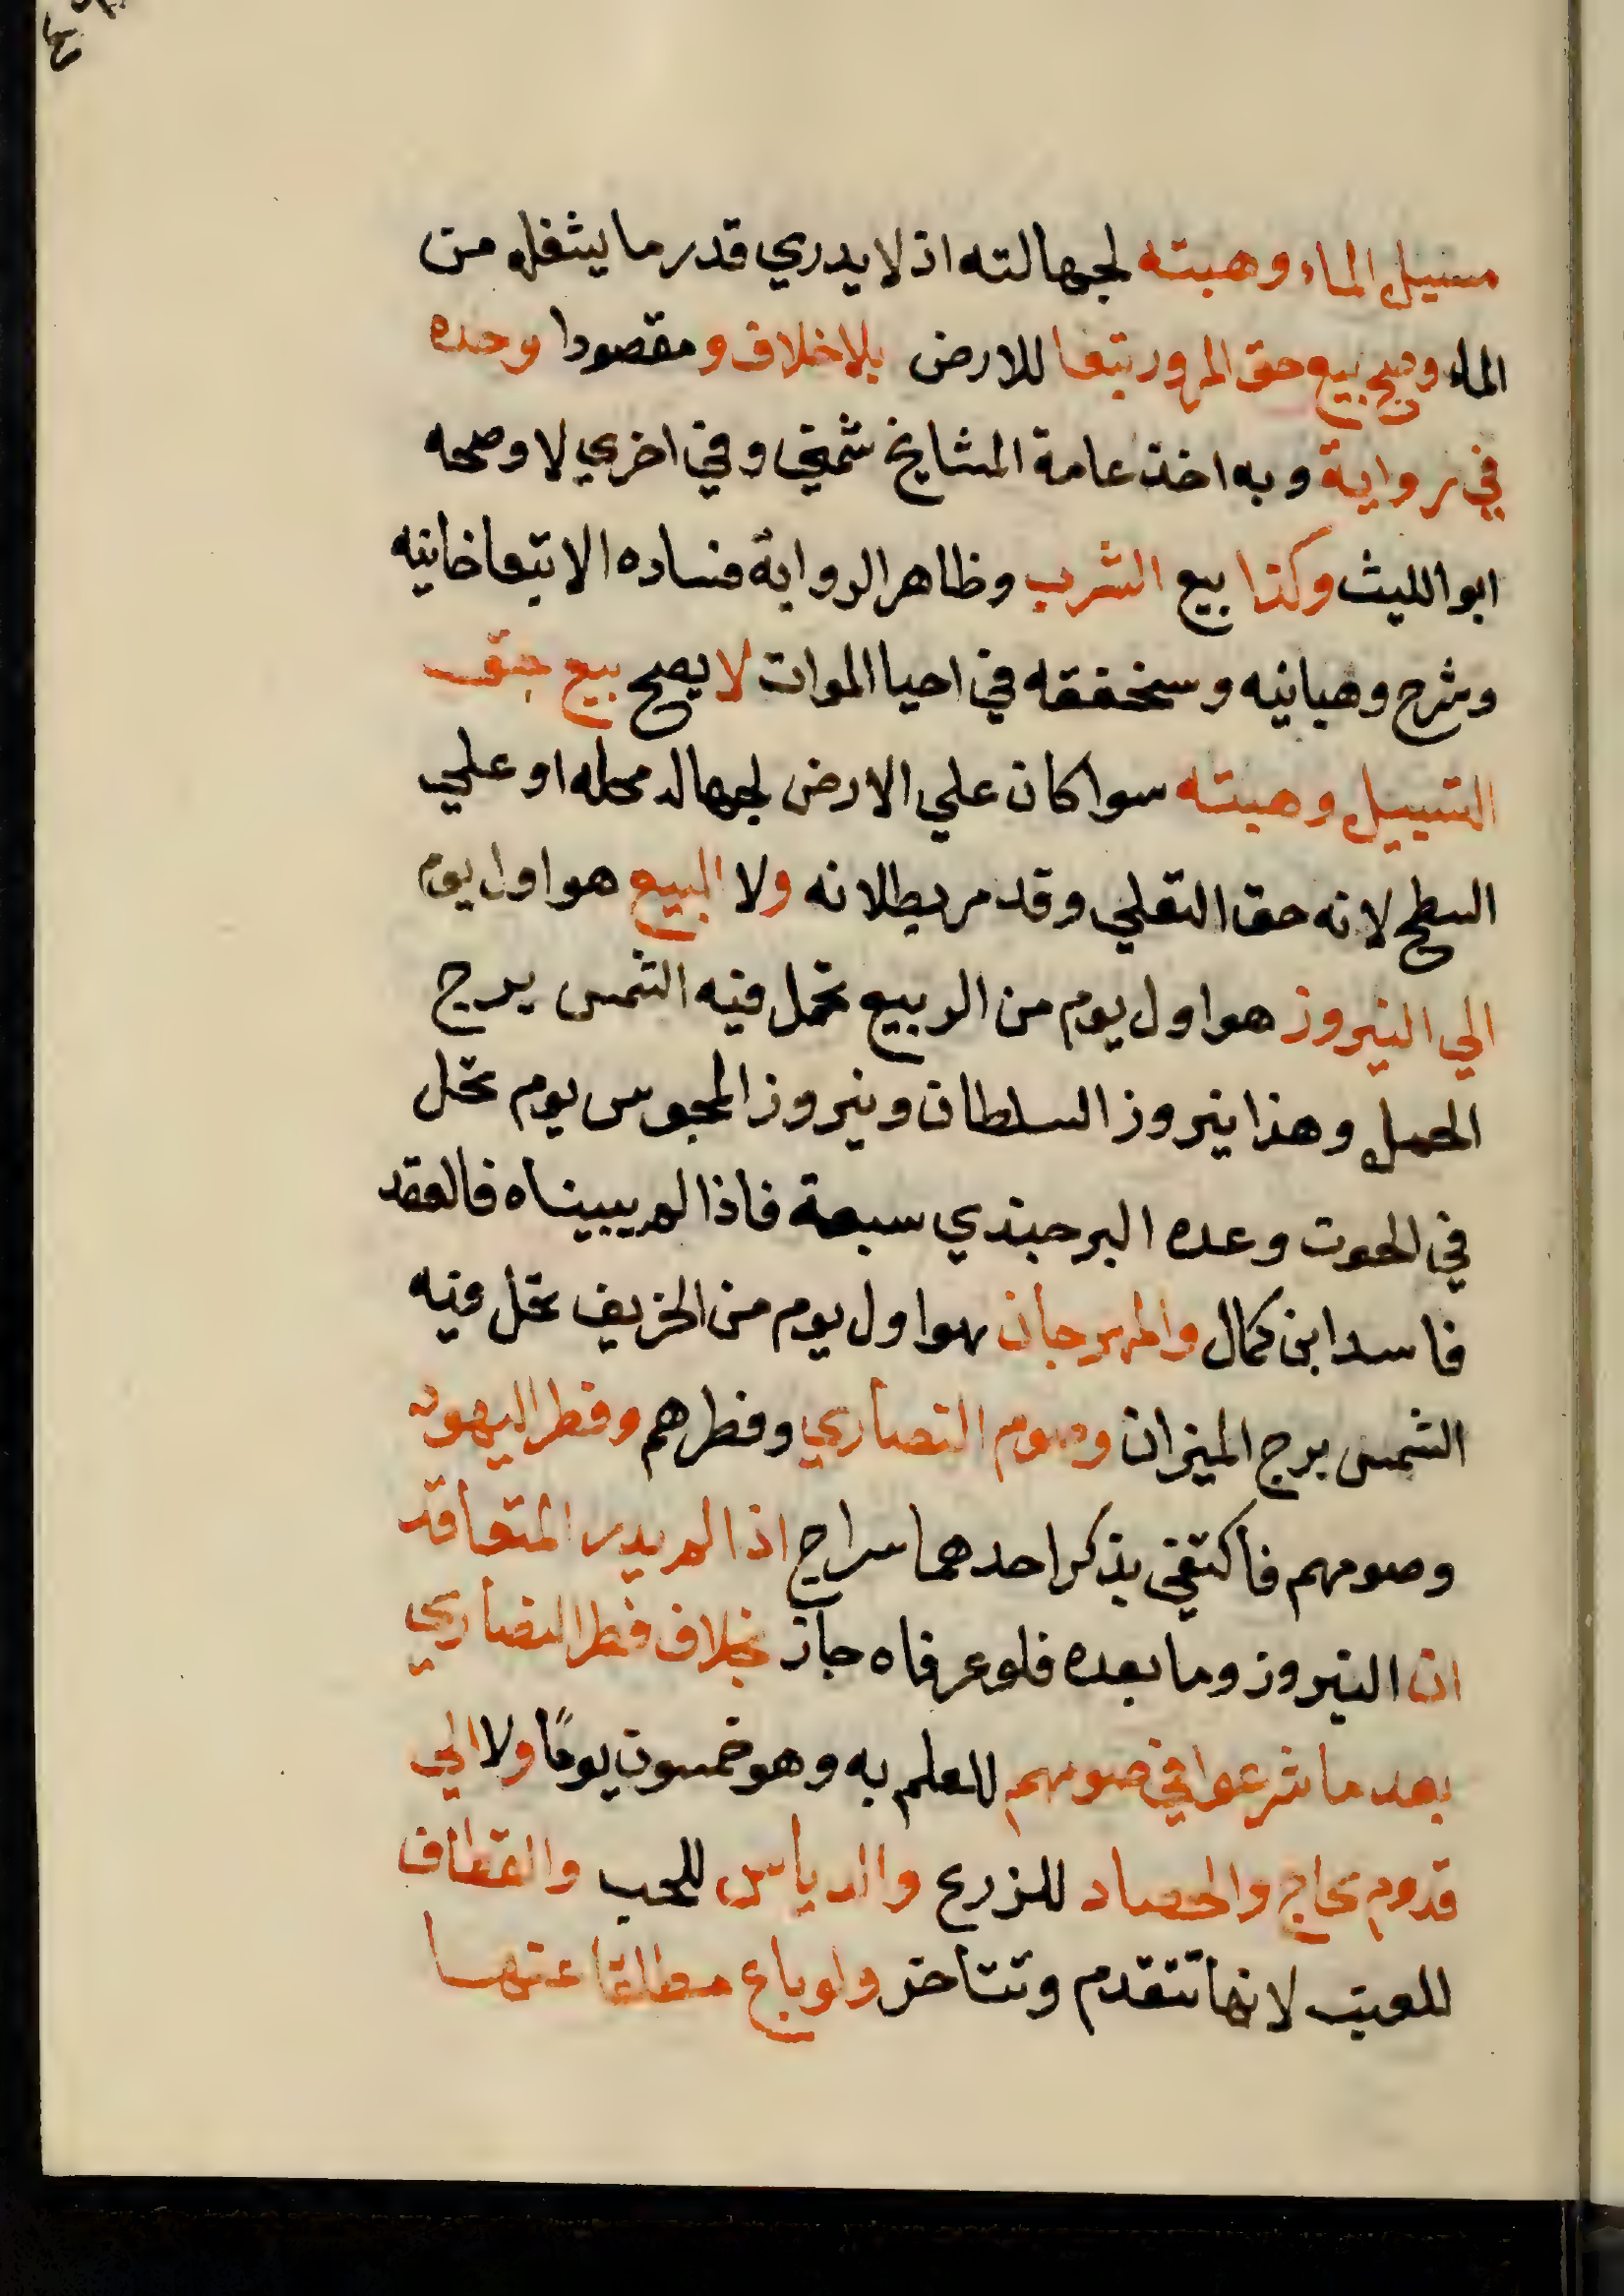 مسيل الماء وهبته لجهالته اذ لا يدري قدر ما يشغل من
الماء وصح بيع حق المرور تبعا للارض بلا خلاف و مقصودا وحده
في رواية و به اخذ عامة المشايخ شمني و في اخري لا وصححه
ابو الليث وكذا بيع الشرب وظاهر الرواية فساده الا تبعا خانيه
وشرح وهبانيه وسنحققه في احيا الموات لا يصح بيع حق
التسييل وهبته سوا كان علي الارض لجهالة محله او علي
السطح لانه حق التعلي وقد مر بطلانه ولا البيع هو اول يوم
الي النيروز هو اول يوم من الربيع تحل فيه الشمس برج
الحمل وهذا نيروز السلطان ونيروز المجوس يوم تحل
في الحوت وعده البرجندي سبعة فاذا لم يبيناه فالعقد
فاسد ابن كمال والمهرجان هو اول يوم من الخريف تحل فيه
الشمس برج الميزان وصوم النصاري وفطرهم وفطر اليهود
وصومهم فاكتفي بذكر احدهما سراج اذا لم يدر المتعاقد
ان النيروز وما بعده فلو عرفاه جاز بخلاف فطر النصاري
بعد ما شرعوا في صومهم للعلم به وهو خمسون يومًا ولا الي
قدوم حاج والحصاد للزرع والدياس للحب والقطاف
للعنب لانها تتقدم وتتاخر ولو باع مطلقا عنها